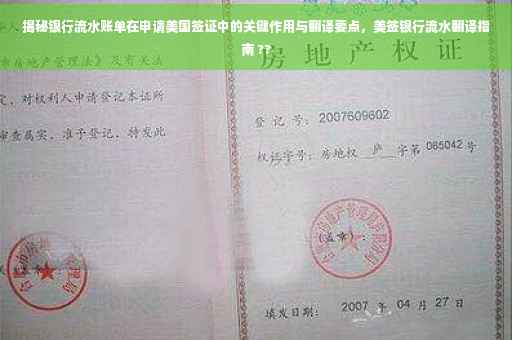 揭秘银行流水账单在申请美国签证中的关键作用与翻译要点，美签银行流水翻译指
南 ??
房地产管理法》及有关
房地产权
定，对权利人申请登记本证所
审查属实，准予登记，特发此
登记号：2007609602
权证字号：房地权 庐 字第 085042 号
(盖章)：
填发日期： 2007 年 04 月 27 日